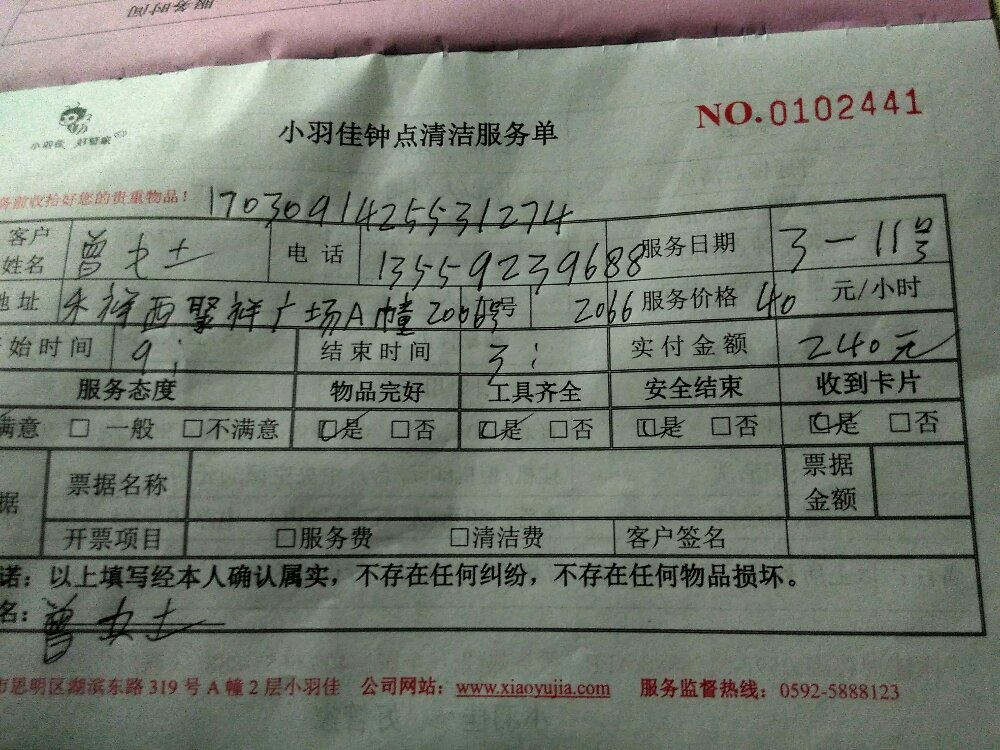 服务时间
小羽佳 好管家
小羽佳钟点清洁服务单
NO.0102441
务前收拾好您的贵重物品！
17030914255531274
客户姓名 曾女士 电话 13559239688 服务日期 3-11号
地址 禾祥西聚祥广场A幢2006号 2066 服务价格 40 元/小时
开始时间 9: 结束时间 3: 实付金额 240元
服务态度 物品完好 工具齐全 安全结束 收到卡片
满意 □ 一般 □不满意 □是 □否 □是 □否 □是 □否 □是 □否
据 票据名称 票据金额
开票项目 □服务费 □清洁费 客户签名
诺：以上填写经本人确认属实，不存在任何纠纷，不存在任何物品损坏。
名：曾女士
市思明区湖滨东路 319 号 A 幢 2 层小羽佳 公司网站：www.xiaoyujia.com 服务监督热线：0592-5888123